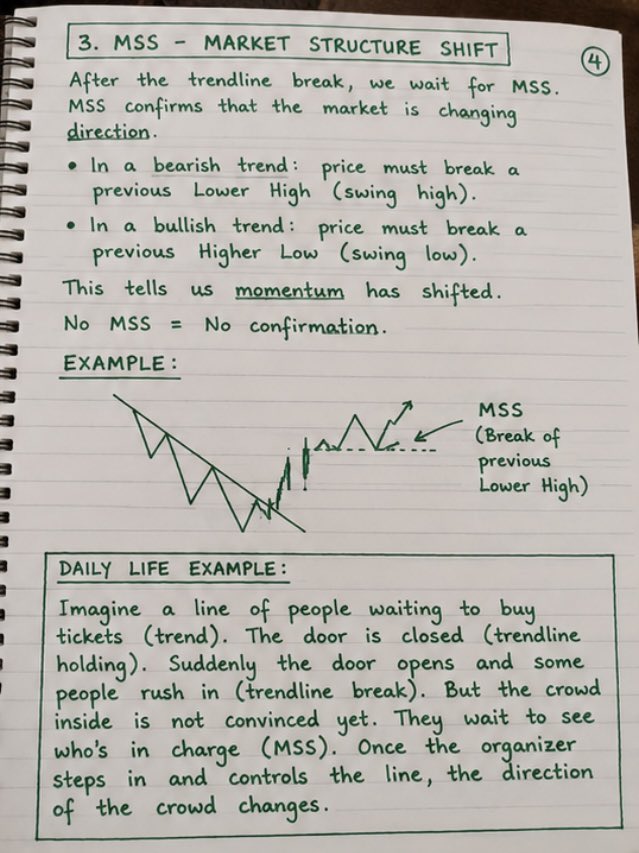 3. MSS - MARKET STRUCTURE SHIFT
4
After the trendline break, we wait for MSS.
MSS confirms that the market is changing
direction.
• In a bearish trend: price must break a
previous Lower High (swing high).
• In a bullish trend: price must break a
previous Higher Low (swing low).
This tells us momentum has shifted.
No MSS = No confirmation.
EXAMPLE:
MSS
(Break of
previous
Lower High)
DAILY LIFE EXAMPLE:
Imagine a line of people waiting to buy
tickets (trend). The door is closed (trendline
holding). Suddenly the door opens and some
people rush in (trendline break). But the crowd
inside is not convinced yet. They wait to see
who's in charge (MSS). Once the organizer
steps in and controls the line, the direction
of the crowd changes.